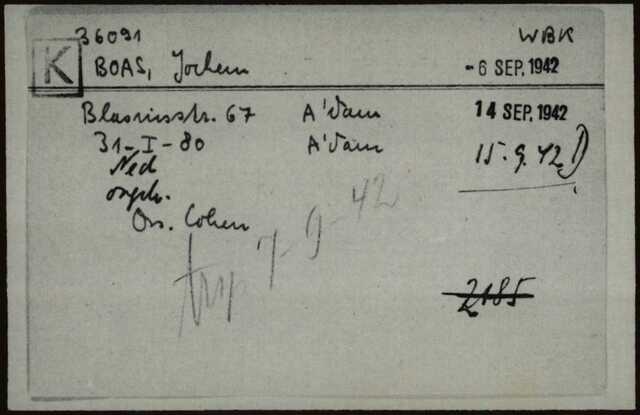 36091 WBK
K BOAS, Jochem - 6 SEP. 1942
Blasiusstr. 67 A'dam 14 SEP. 1942
31-I-80 A'dam 15.9.42
Ned
ongeh.
Ors. Cohen
trsp. 7-9-42
2185